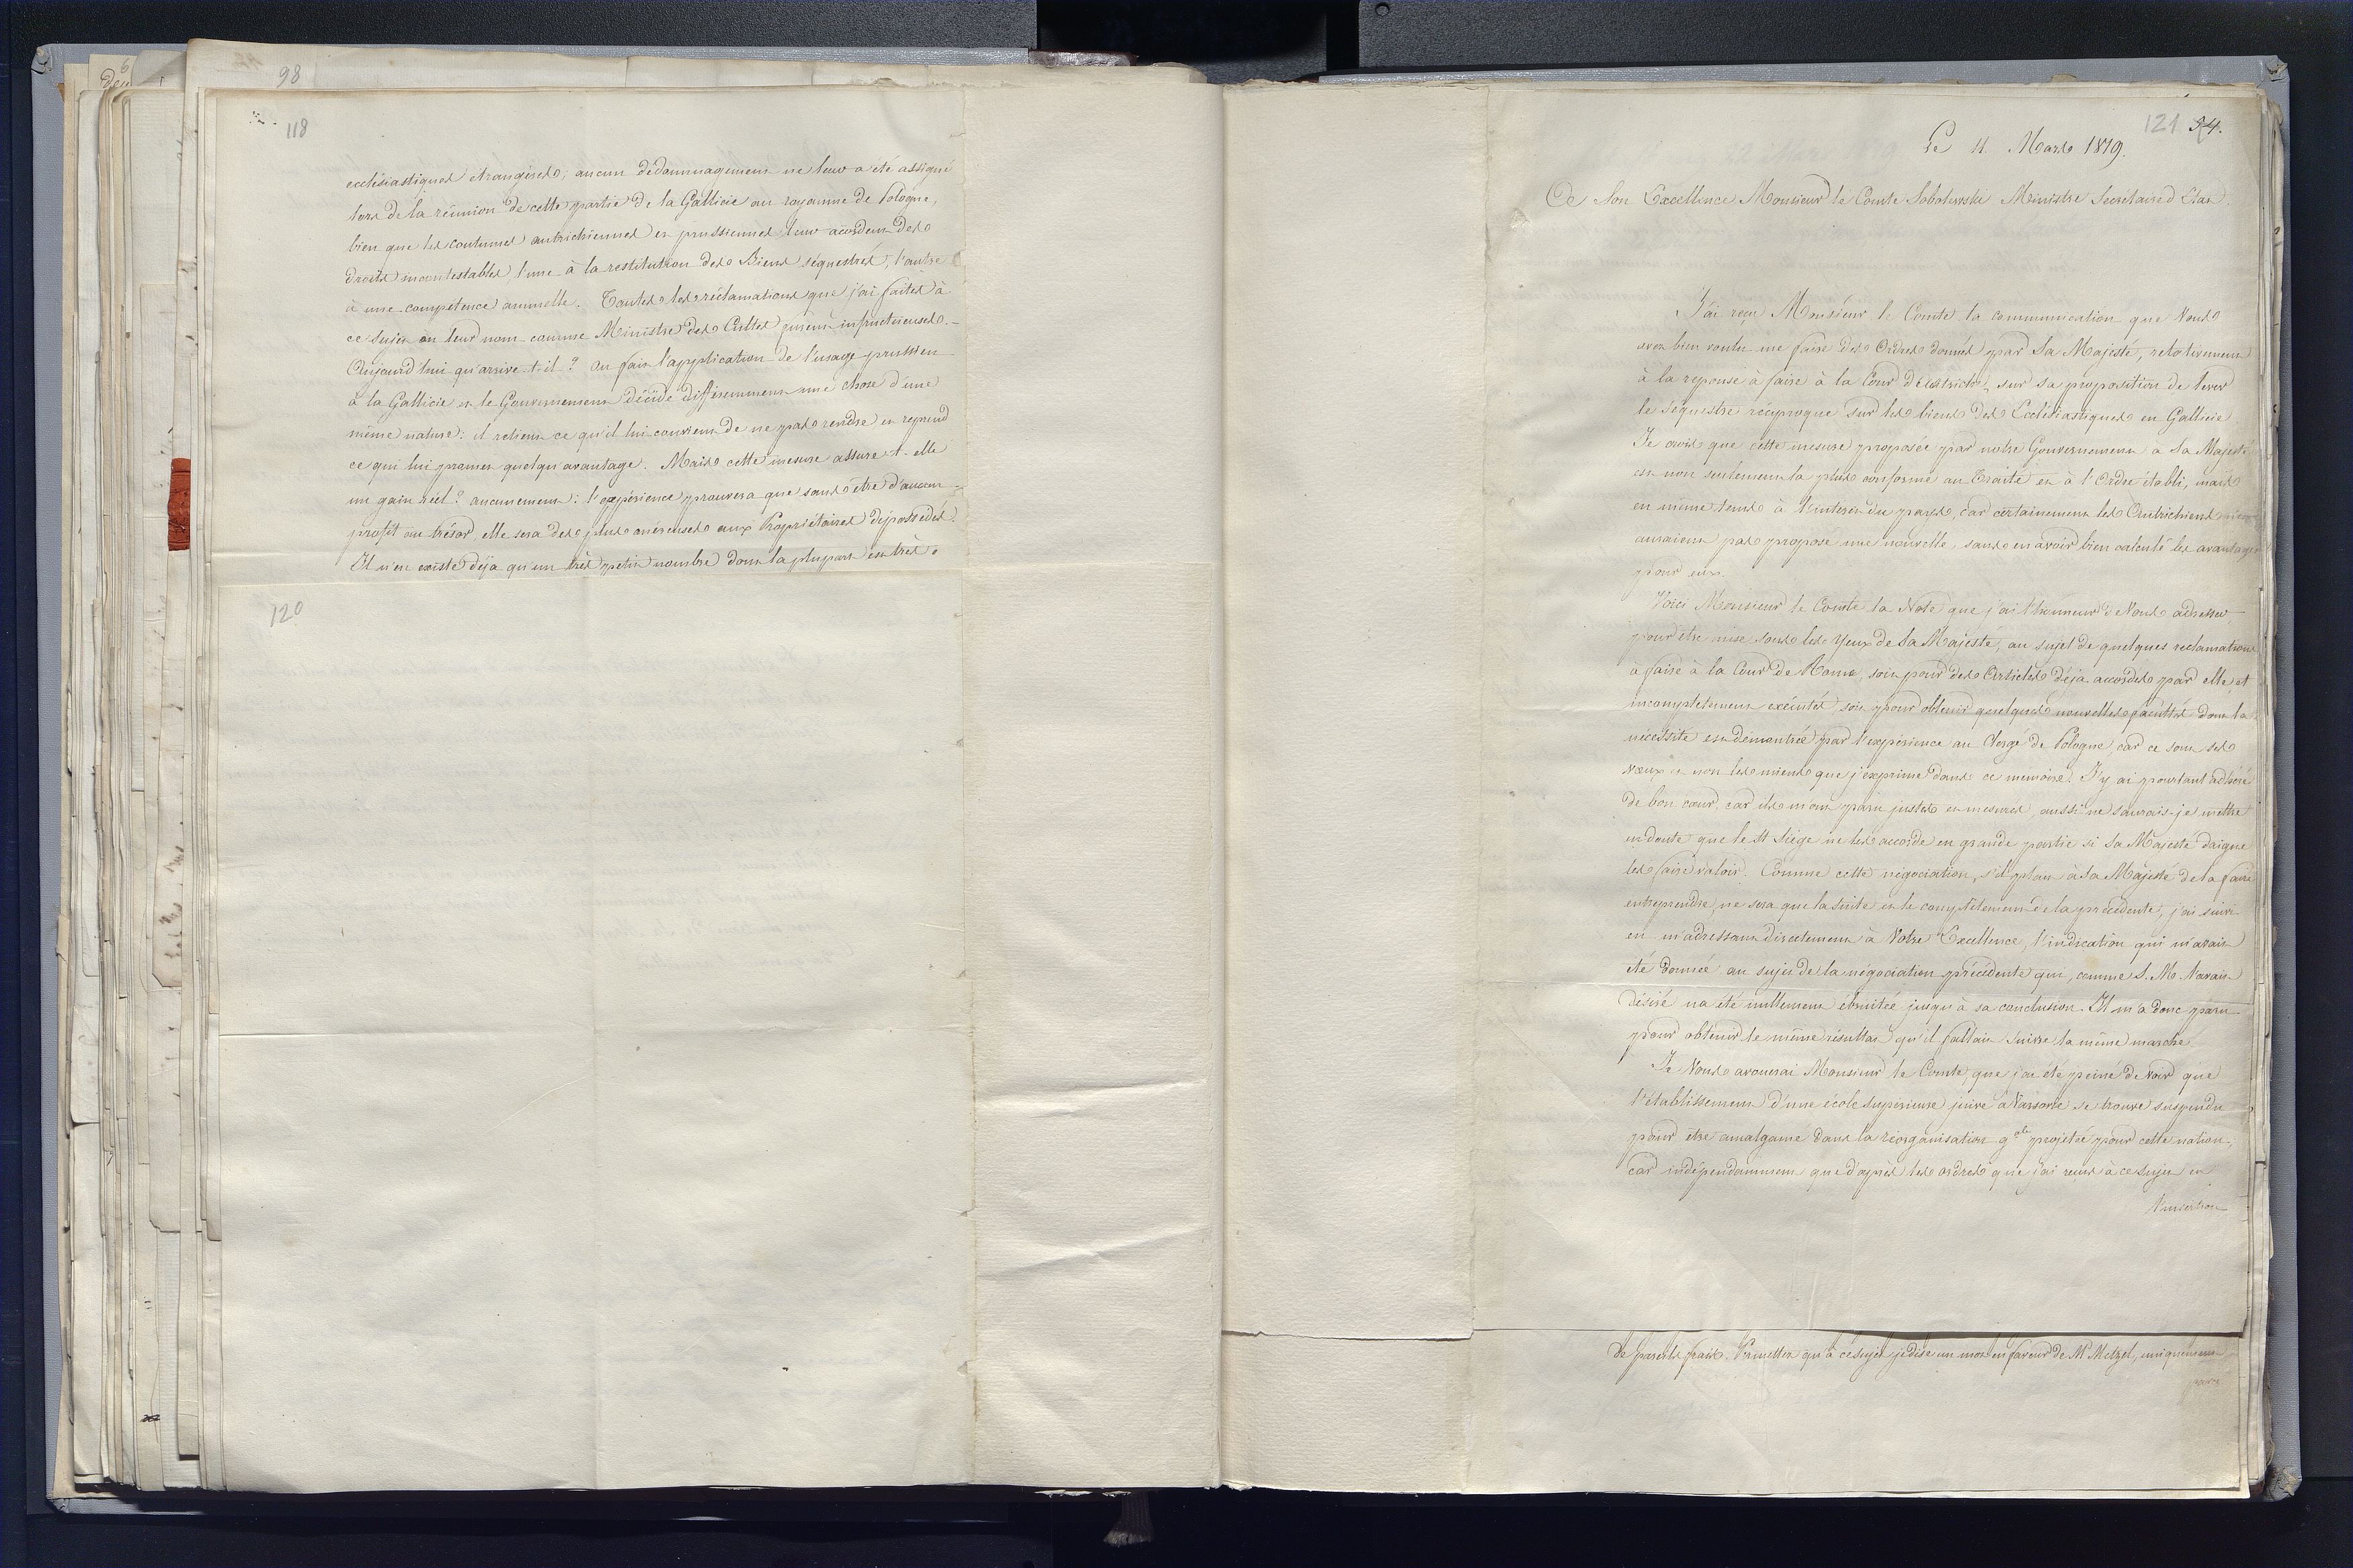 98
118
ecclésiastiques étrangers; aucun dédommagement ne leur a été assigné
lors de la réunion de cette partie de la Gallicie au royaume de Pologne,
bien que les coutumes autrichiennes et prussiennes leur accordent des
droits incontestables, l'une à la restitution des Biens séquestrés, l'autre
à une compétence annuelle. Toutes les réclamations que j'ai faites à
ce sujet en leur nom comme Ministre des Cultes furent infructueuses.
Aujourd'hui qu'arrive-t-il? on fait l'application de l'usage prussien
à la Gallicie et le Gouvernement décide différemment une chose d'une
même nature: il retient ce qu'il lui convient de ne pas rendre et reprend
ce qui lui promet quelqu'avantage. Mais cette mesure assure-t-elle
un gain réel? aucunement: l'expérience prouvera que sans être d'aucun
profit au trésor, elle sera des plus onéreuses aux Propriétaires dépossédés.
Il n'en existe déja qu'un très petit nombre dont la plupart est très
120
121 54.
Le 11 Mars 1819.
A Son Excellence Monsieur le Comte Sobolewski Ministre Secrétaire d'Etat.
J'ai reçu Monsieur le Comte la communication que Vous
avez bien voulu me faire des Ordres donnés par Sa Majesté, relativement
à la reponse à faire à la Cour d'Autriche, sur sa proposition de lever
le séquestre réciproque sur les biens des Ecclésiastiques en Gallicie
Je crois que cette mesure proposée par notre Gouvernement a Sa Majesté
est non seulement la plus conforme au Traité et à l'Ordre établi, mais
en même tems à l'intérêt du pays, car certainement les Autrichiens n'en
auraient pas proposé une nouvelle, sans en avoir bien calculé les avantages
pour eux.
Voici Monsieur le Comte la Note que j'ai l'honneur de Vous adresser
pour être mise sous les yeux de Sa Majesté, au sujet de quelques reclamations
à faire à la Cour de Rome, soit pour des Articles déja accordés par elle et
incomplètement exécutés, soit pour obtenir quelques nouvelles facultés dont la
nécessité est démontrée par l'expérience au Clergé de Pologne car ce sont ses
vœux et non les miens que j'exprime dans ce mémoire. J'y ai pourtant adhéré
de bon cœur, car ils m'ont paru justes et mesurés, aussi ne saurais-je mettre
en doute que le St Siège ne les accorde en grande partie si Sa Majesté daigne
les faire valoir. Comme cette négociation, s'il plait à Sa Majesté de la faire
entreprendre, ne sera que la suite et le complètement de la précédente, j'ai suivi
en m'adressant directement à Votre Excellence, l'indication qui m'avait
été donnée au sujet de la négociation précédente qui, comme S. M. l'avait
désiré n'a été nullement ebruitée jusqu'à sa conclusion. Il m'a donc paru
pour obtenir le même résultat qu'il fallait suivre la même marche.
Je Vous avouerai Monsieur le Comte que j'ai été peiné de voir que
l'établissement d'une école supérieure juive à Varsovie se trouve suspendu
pour être amalgamé dans la réorganisation gale projetée pour cette nation,
car indépendamment que d'après les ordres que j'ai reçus à ce sujet et
l'insertion
de pareils frais. Permettez qu'à ce sujet je dise un mot en faveur de Mr Metzel, uniquement